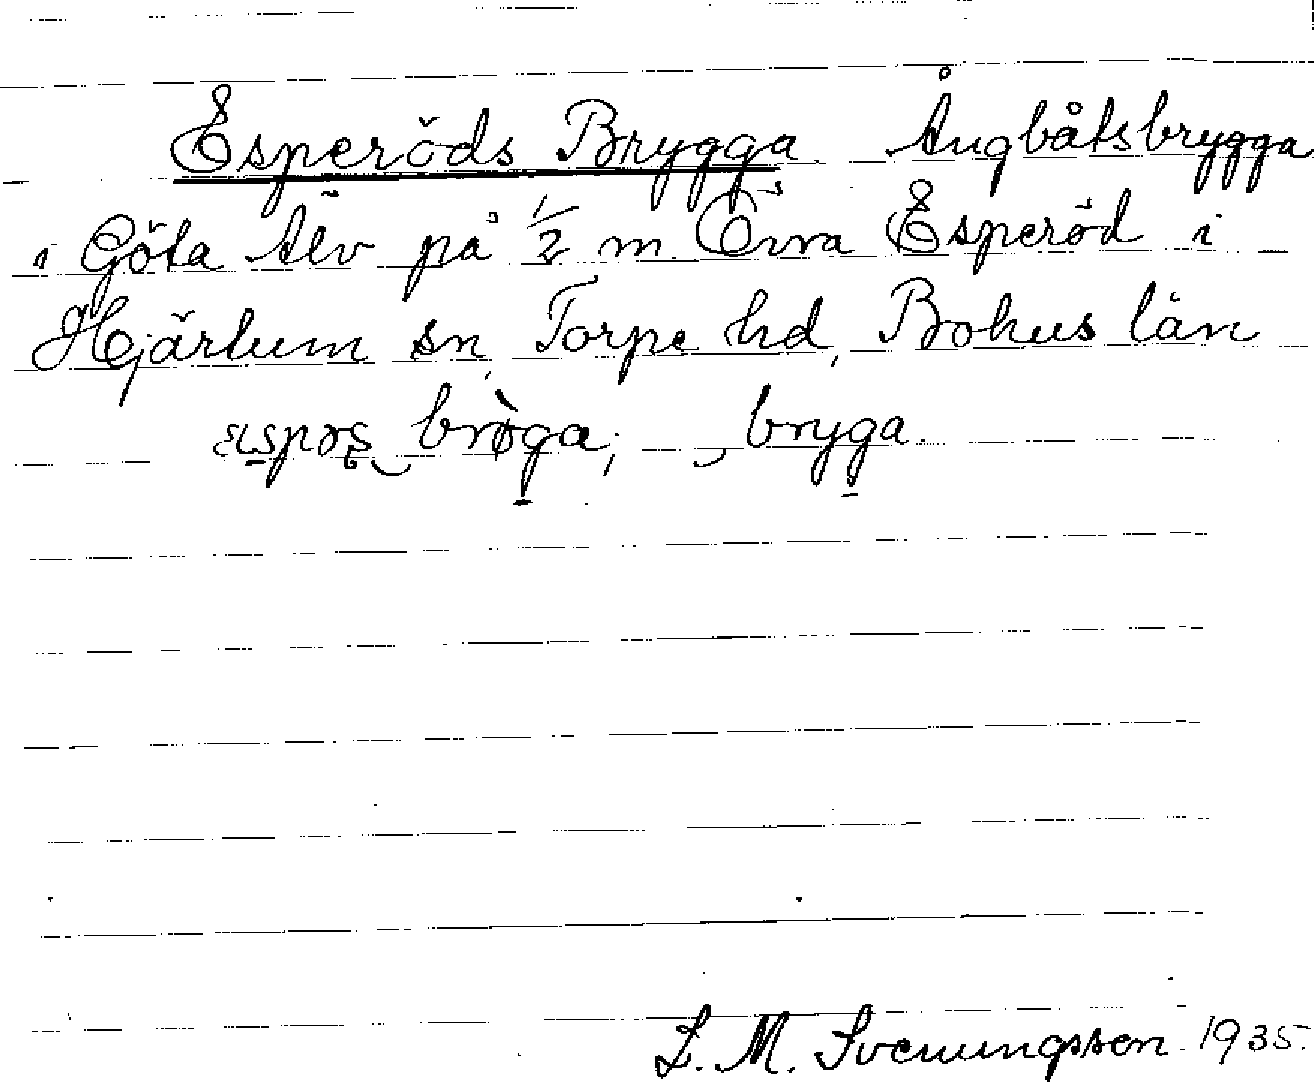 Esperöds Brygga Ångbåtsbrygga
i Göta Älv på ½ m Övra Esperöd i
Hjärtum sn, Torpe hd, Bohus län
brøga; bryga.
L. M. Svenungsson 1935.